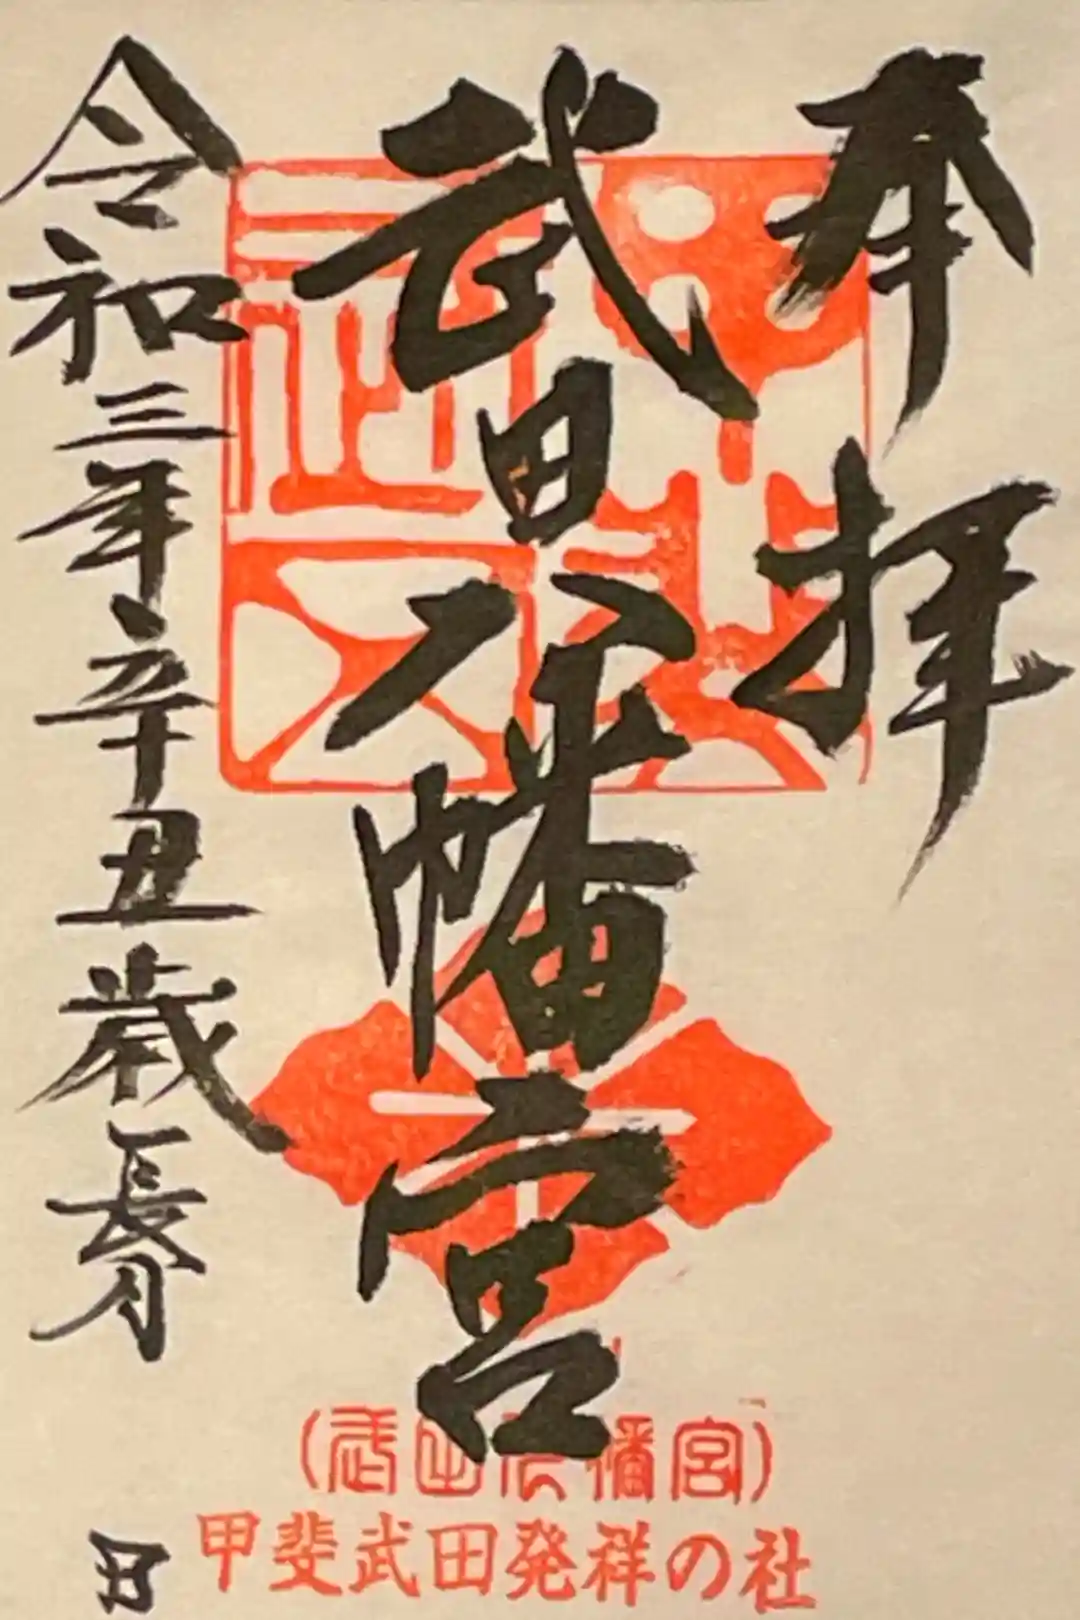 奉拝
武田八幡宮
令和三年辛丑歳長月
日
(武田八幡宮)
甲斐武田発祥の社